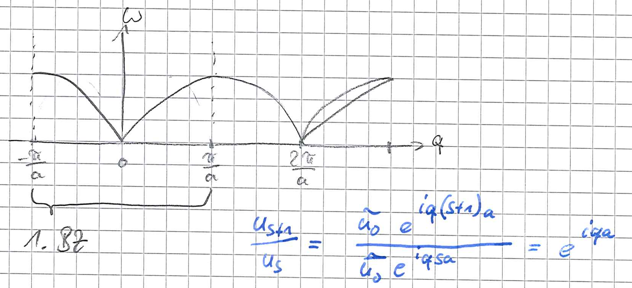 ω
q
-π/a 0 π/a 2π/a
1. BZ
u_{s+1}/u_s = ũ_0 e^{iq(s+1)a} / ũ_0 e^{iqsa} = e^{iqa}